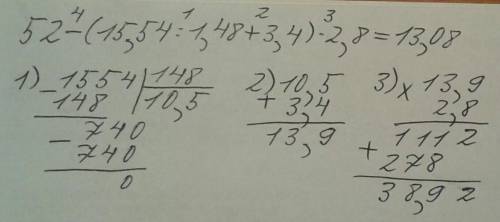 52-(15,54:1,48+3,4)·2,8=13,08
4 1 2 3
1) -1554 | 148
148 | 10,5
- 740
740
0
2) 10,5
+ 3,4
13,9
3) x 13,9
2,8
1112
+ 278
38,92